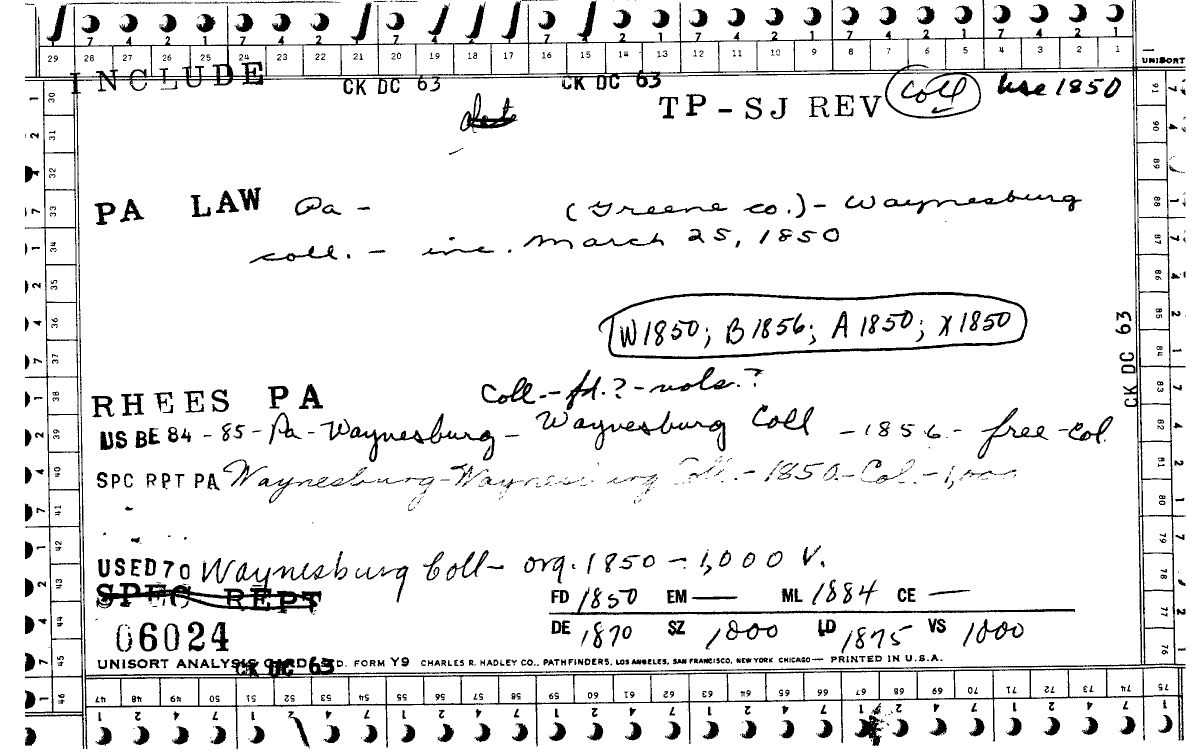 29 28 27 26 25 24 23 22 21 20 19 18 17 16 15 14 13 12 11 10 9 8 7 6 5 4 3 2 1
UNISORT
INCLUDE CK DC 63 CK DC 63
TP-SJ REV Coll use 1850
PA LAW Pa - (Greene co.) - Waynesburg
coll. - inc. March 25, 1850
W1850; B1856; A1850; X1850
CK DC 63
RHEES PA Coll.-fd.?-vols.?
US BE 84-85-Pa-Waynesburg-Waynesburg Coll -1856- free-Col.
SPC RPT PA Waynesburg-Waynesburg Coll.-1850-Col.-1,000
USED70 Waynesburg Coll- org. 1850 - 1,000 V.
SPEC REPT
FD 1850 EM — ML 1884 CE —
06024
DE 1870 SZ 1000 LD 1875 VS 1000
UNISORT ANALYSIS CARD STD. FORM Y9 CHARLES R. HADLEY CO., PATHFINDERS, LOS ANGELES, SAN FRANCISCO, NEW YORK CHICAGO— PRINTED IN U.S.A.
CK DC 63
47 48 49 50 51 52 53 54 55 56 57 58 59 60 61 62 63 64 65 66 67 68 69 70 71 72 73 74 75